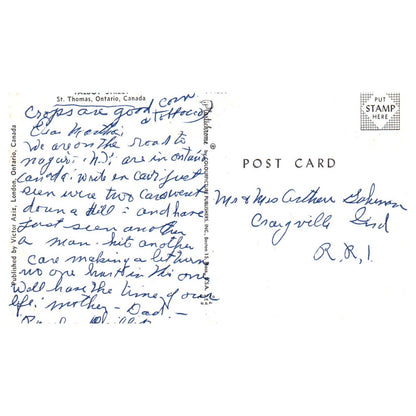 TALBOT STREET
St. Thomas, Ontario, Canada
Crops are good corn
& tobacco
Dear Martha:
We are on the road to
N.Y. are in Ontario
Canada: write in car: just
seen were two cars went
down a Hill = and have
just seen another
a man hit another
Car making a turn
no one hurt in this one
Will have the time of our
life. Mother - Dad -
Published by Victor Aziz, London, Ontario, Canada
Plastichrome
® by COLOURPICTURE PUBLISHERS, INC., Boston 15, Mass., U.S.A.
POST CARD
PUT
STAMP
HERE
Mr & Mrs Arthur
Craigville Ind
R.R.1.